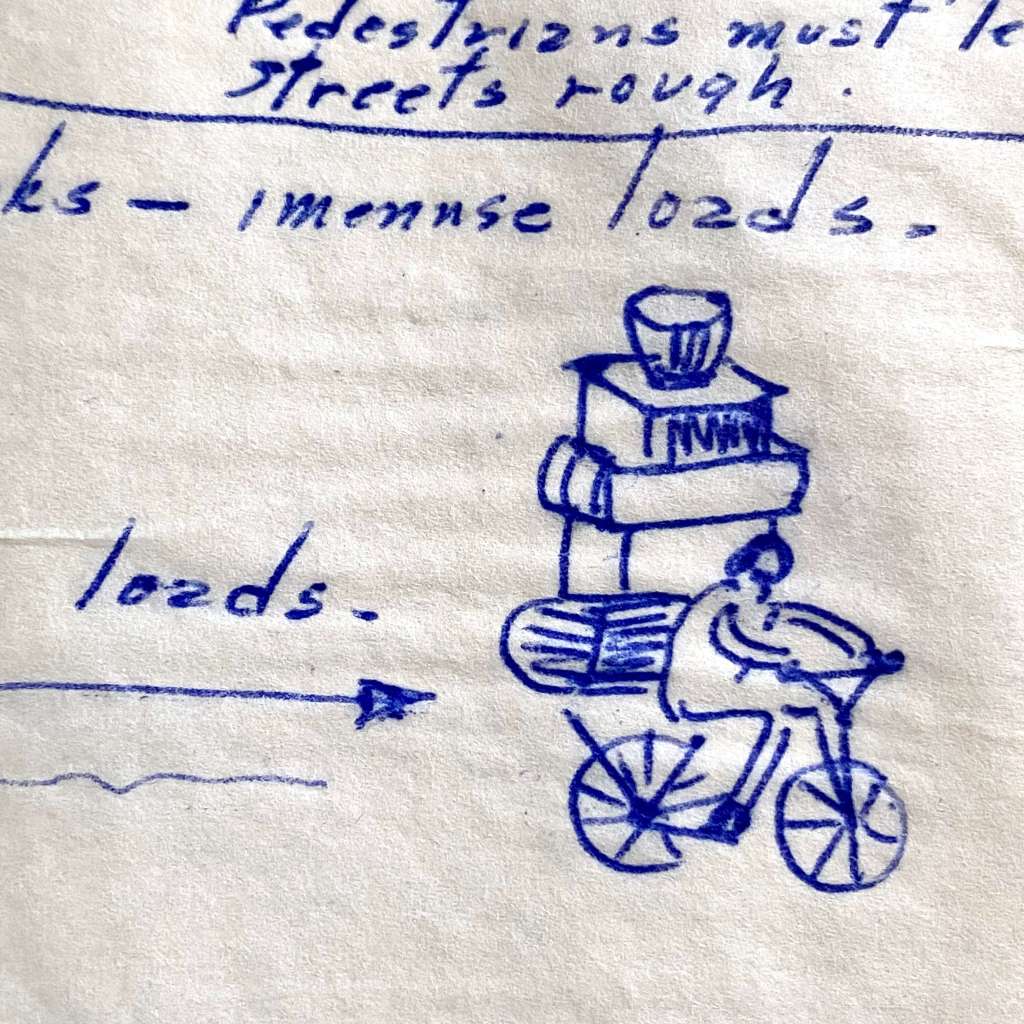 Pedestrians must
streets rough.
ks - imennse loads.
loads.